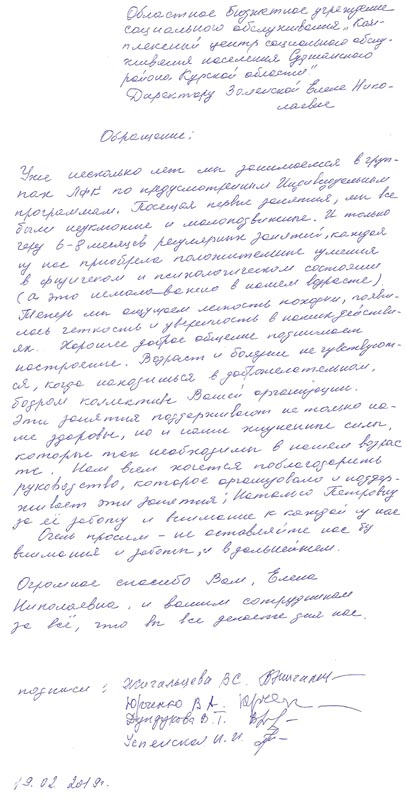 Областное Бюджетное учреждение
социального обслуживания „Ком-
плексный центр социального обслу-
живания населения Суджанского
района Курской области"
Директору Золенской Елене Нико-
лаевне
Обращение:
Уже несколько лет мы занимаемся в груп-
пах ЛФК по предусмотренным Индивидуальным
программам. Посещая первые занятия, мы все
были неуклюжие и малоподвижные. И только
через 6-8 месяцев регулярных занятий, каждая
из нас приобрела положительные умения
в физическом и психологическом состоянии
(а это немаловажно в нашем возрасте)
Теперь мы ощущаем легкость походки, появи-
лась четкость и уверенность в наших действи-
ях. Хорошее доброе общение поднимает
настроение. Возраст и болезни не чувствуют-
ся, когда находишься в доброжелательном,
бодром коллективе Вашей организации.
Эти занятия поддерживают не только на-
ше здоровье, но и наши жизненные силы,
которые так необходимы в нашем возрас-
те. Нам всем хочется поблагодарить
руководство, которое организовали и поддер-
живает эти занятия; Наталью Петровну
за её заботу и внимание к каждой из нас
Очень просим - не оставляйте нас без
внимания и заботы, и в дальнейшем.
Огромное спасибо Вам, Елена
Николаевна, и вашим сотрудникам
за всё, что вы все делаете для нас.
подписи: Жигальцева В.С.
Юрченко В.А.
Дундукова В.Г.
Успенская И.И.
19.02.2019г.